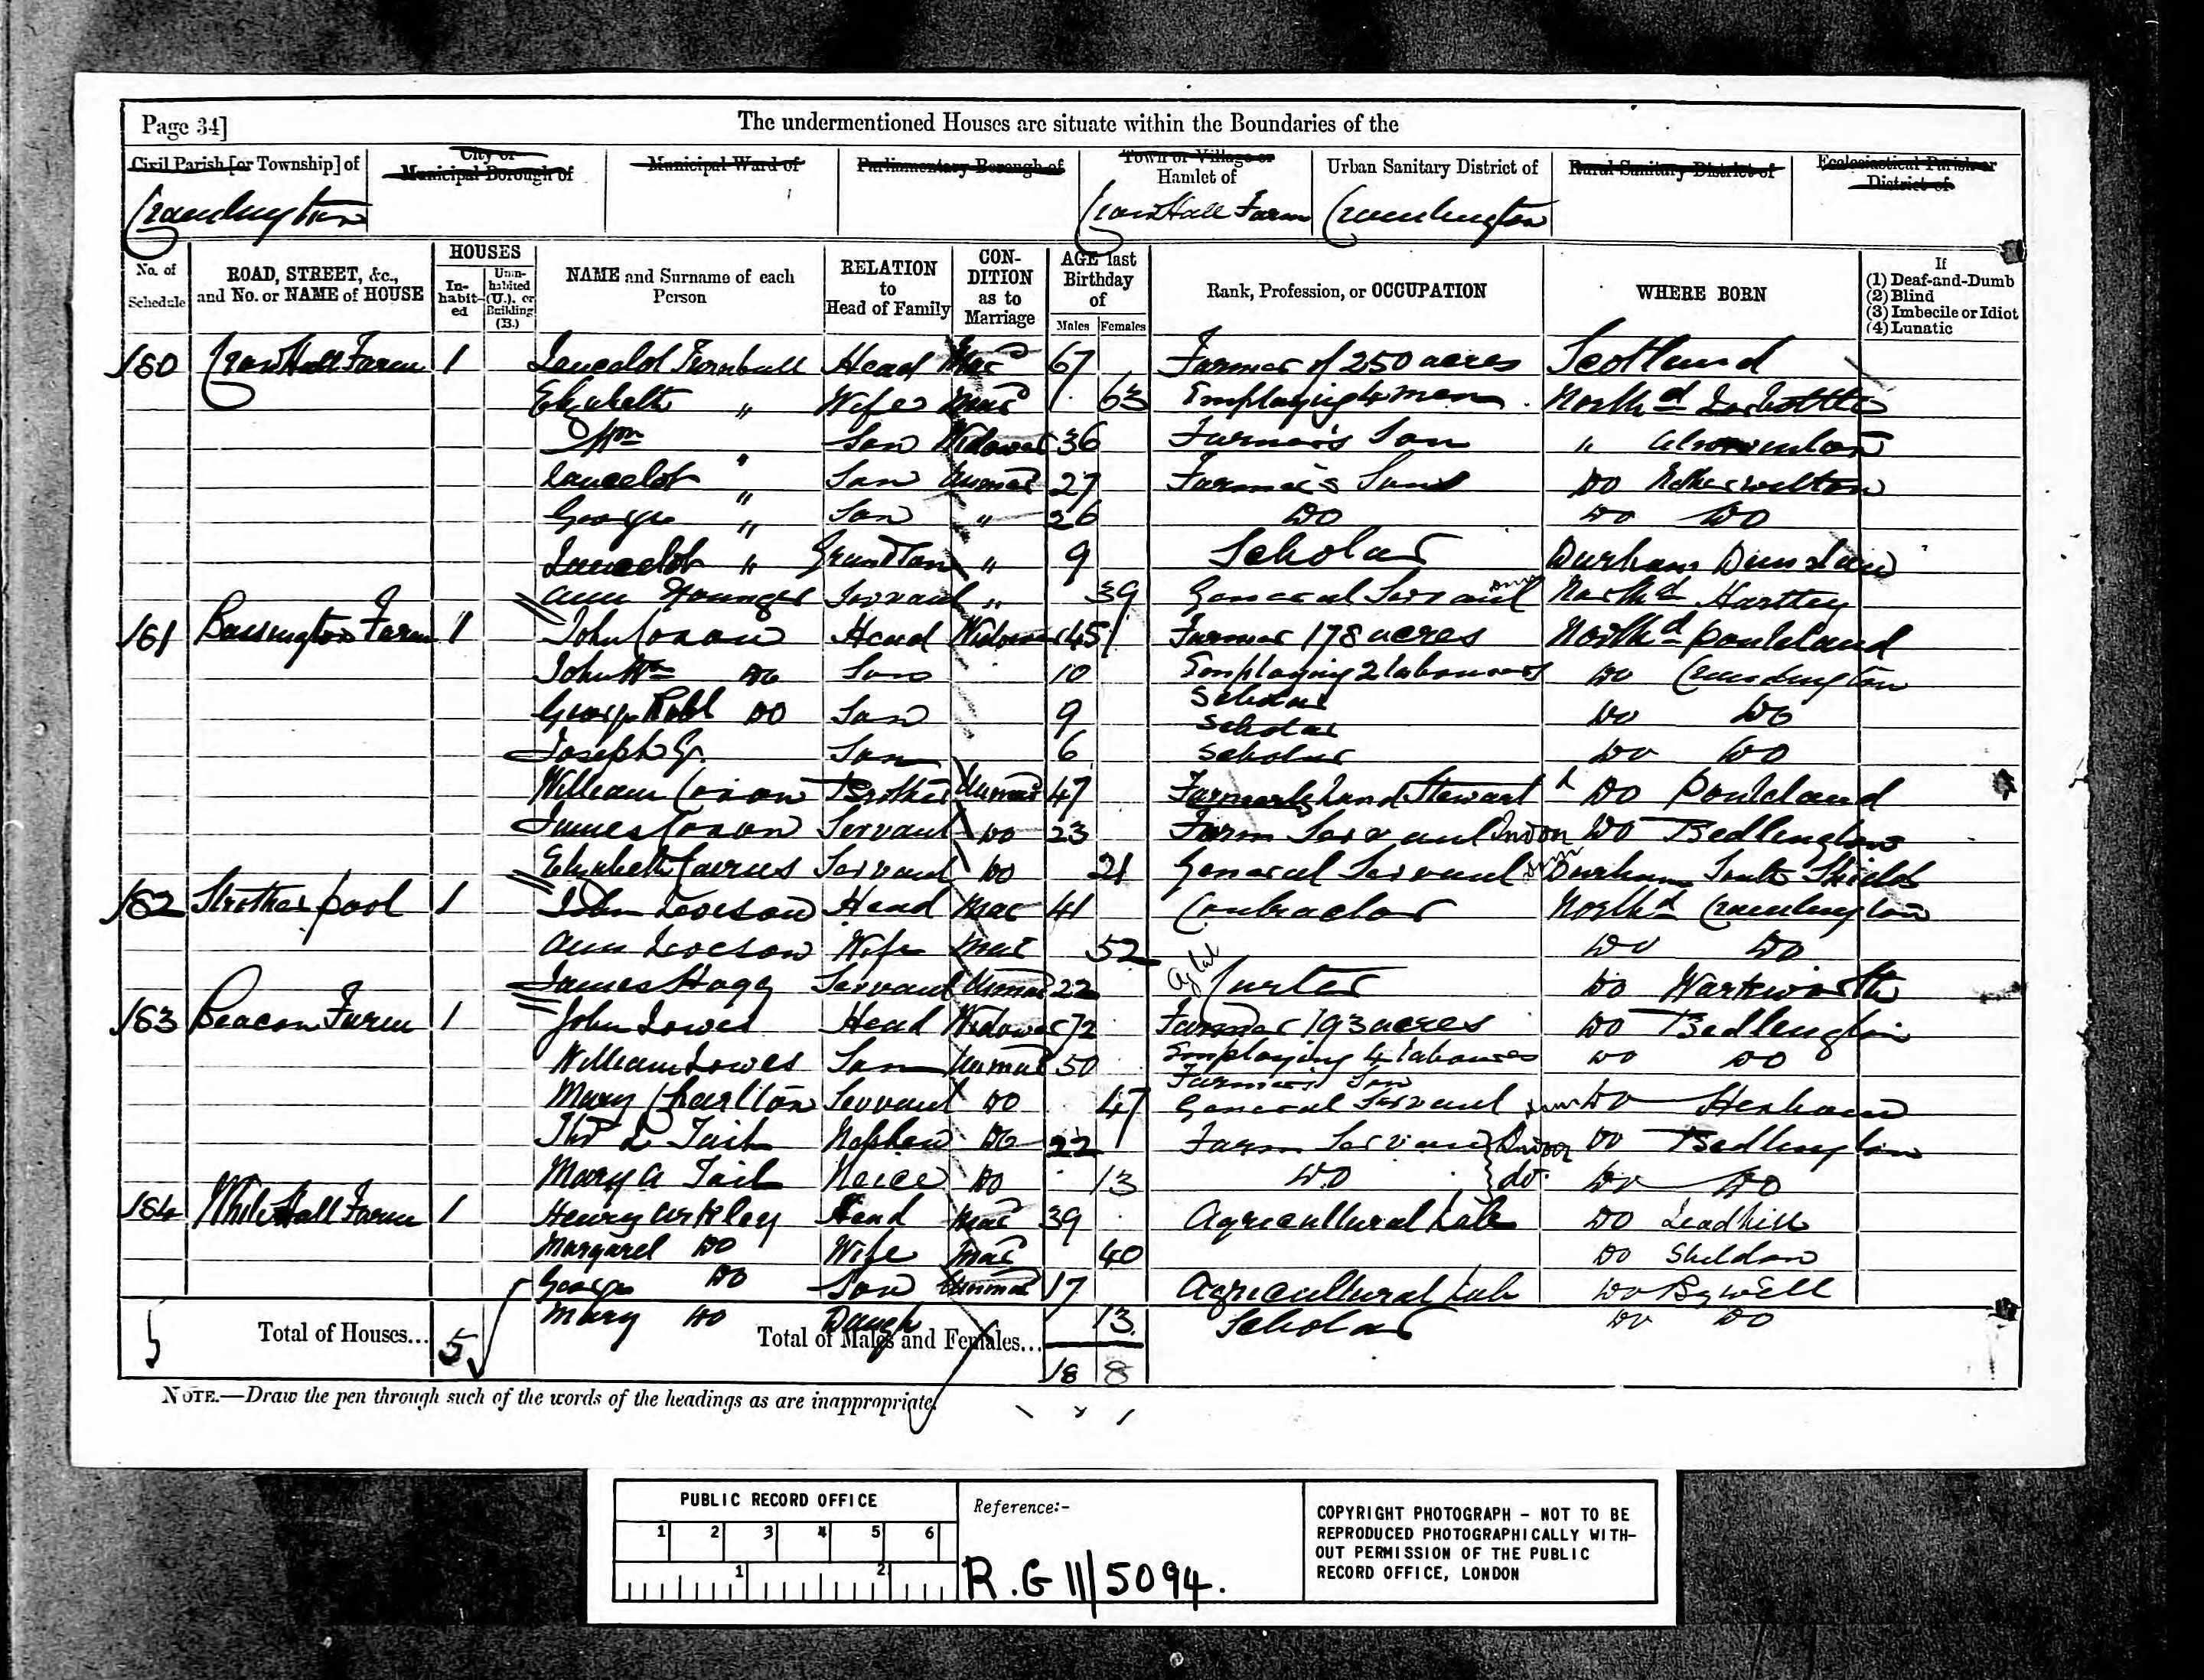 Page 34]
The undermentioned Houses are situate within the Boundaries of the
Civil Parish [or Township] of
City or Municipal Borough of
Municipal Ward of
Parliamentary Borough of
Town or Village or Hamlet of
Urban Sanitary District of
Rural Sanitary District of
Ecclesiastical Parish or District of
Cramlington
Crow Hall Farm
Cramlington
No. of Schedule
ROAD, STREET, &c., and No. or NAME of HOUSE
HOUSES
In-habit-ed
Unin-habited (U.), or Building (B.)
NAME and Surname of each Person
RELATION to Head of Family
CON-DITION as to Marriage
AGE last Birthday of
Males Females
Rank, Profession, or OCCUPATION
WHERE BORN
If
(1) Deaf-and-Dumb
(2) Blind
(3) Imbecile or Idiot
(4) Lunatic
160 Crow Hall Farm 1 Lancelot Turnbull Head Mar 67 Farmer of 250 acres Scotland
Elizabeth " Wife Mar 63 Employing 4 men North'd
Wm " Son Widower 36 Farmer's Son " Alwinton
Lancelot " Son Unmar 27 Farmer's Son Do Netherwitton
George " Son " 26 Do Do Do
Lancelot " Grand Son " 9 Scholar Durham Dunston
Ann Younger Servant " 39 General Servant Dom North'd Hartley
161 Bassington Farm 1 John Coxon Head Widower 45 Farmer 178 acres North'd Ponteland
John Wm Do Son 10 Employing 2 labourers Do Cramlington
George Robt Do Son 9 Scholar Do Do
Scholar
Joseph G. Son 6 Scholar Do Do
William Coxon Brother Unmar 47 Formerly Land Stewart Do Ponteland
James Coxon Servant Do 23 Farm Servant Indoor Do Bedlington
Elizabeth Cairns Servant Do 21 General Servant Dom Durham South Shields
162 Strother pool 1 John Head Mar 41 Contractor North'd Cramlington
Ann Wife Mar 52 Do Do
James Hogg Servant Unmar 22 Ag Lab Carter Do Warkworth
163 Beacon Farm 1 John Lowes Head Widower 72 Farmer 193 acres Do Bedlington
William Lowes Son Unmar 50 Employing 4 labourers Do Do
Farmer's Son
Mary Charlton Servant Do 47 General Servant Dom Do Hexham
Thos L Tait Nephew Do 22 Farm Servant Indoor Do Bedlington
Mary A Tait Neice Do 13 Do do. Do Do
164 White Hall Farm 1 Henry Arkley Head Mar 39 Agricultural Lab Do Leadhill
Margaret Do Wife Mar 40 Do Sheldon
George Do Son Unmar 17 Agricultural Lab Do Bywell
Mary Do Daugh 13 Scholar Do Do
5 Total of Houses... 5 Total of Males and Females... 18 8
NOTE.—Draw the pen through such of the words of the headings as are inappropriate.
PUBLIC RECORD OFFICE
1 2 3 4 5 6
1 2
Reference:-
R.G 11/5094.
COPYRIGHT PHOTOGRAPH - NOT TO BE
REPRODUCED PHOTOGRAPHICALLY WITH-
OUT PERMISSION OF THE PUBLIC
RECORD OFFICE, LONDON